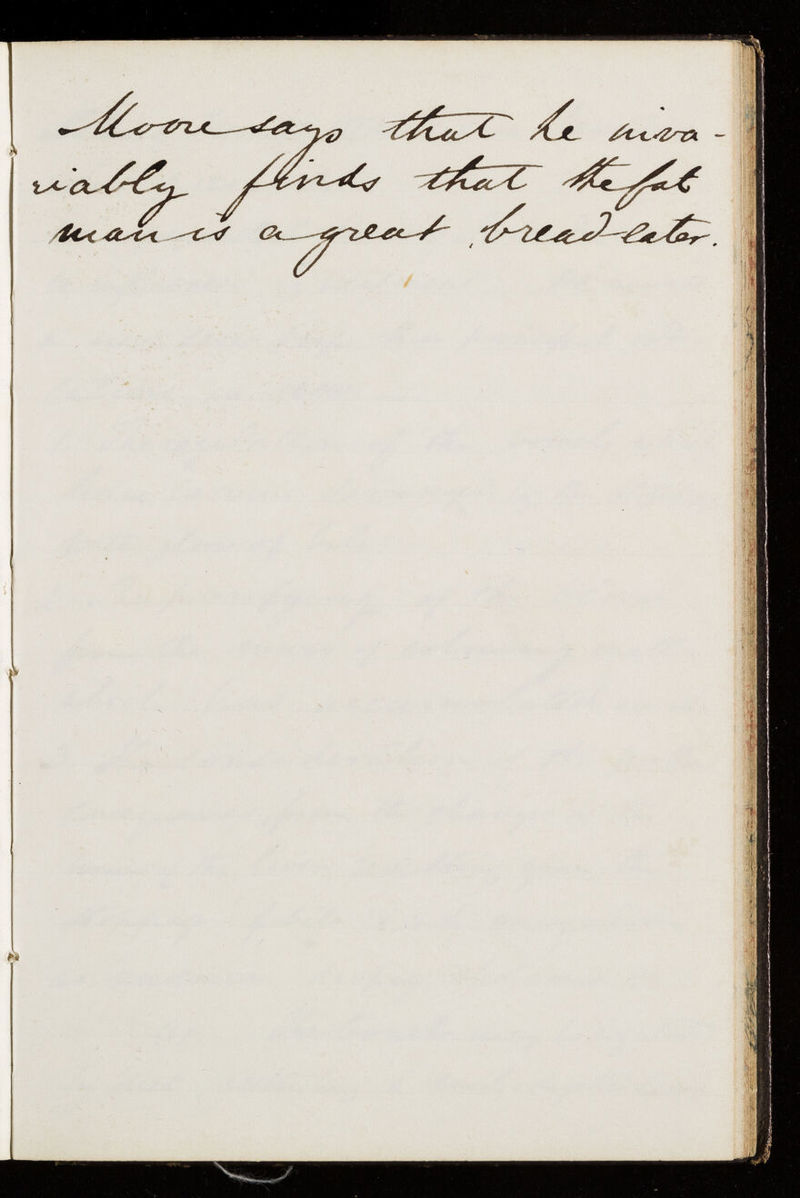 Moore says that he inva-
riably finds that the fat
man is a great bread-eater.